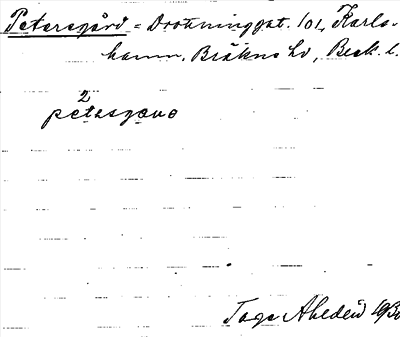 Petersgård = Drottninggat. 101, Karls-
hamn, Bräkne hd, Blek. l.
2
petəsgɑ
Tage Ahldén 1930